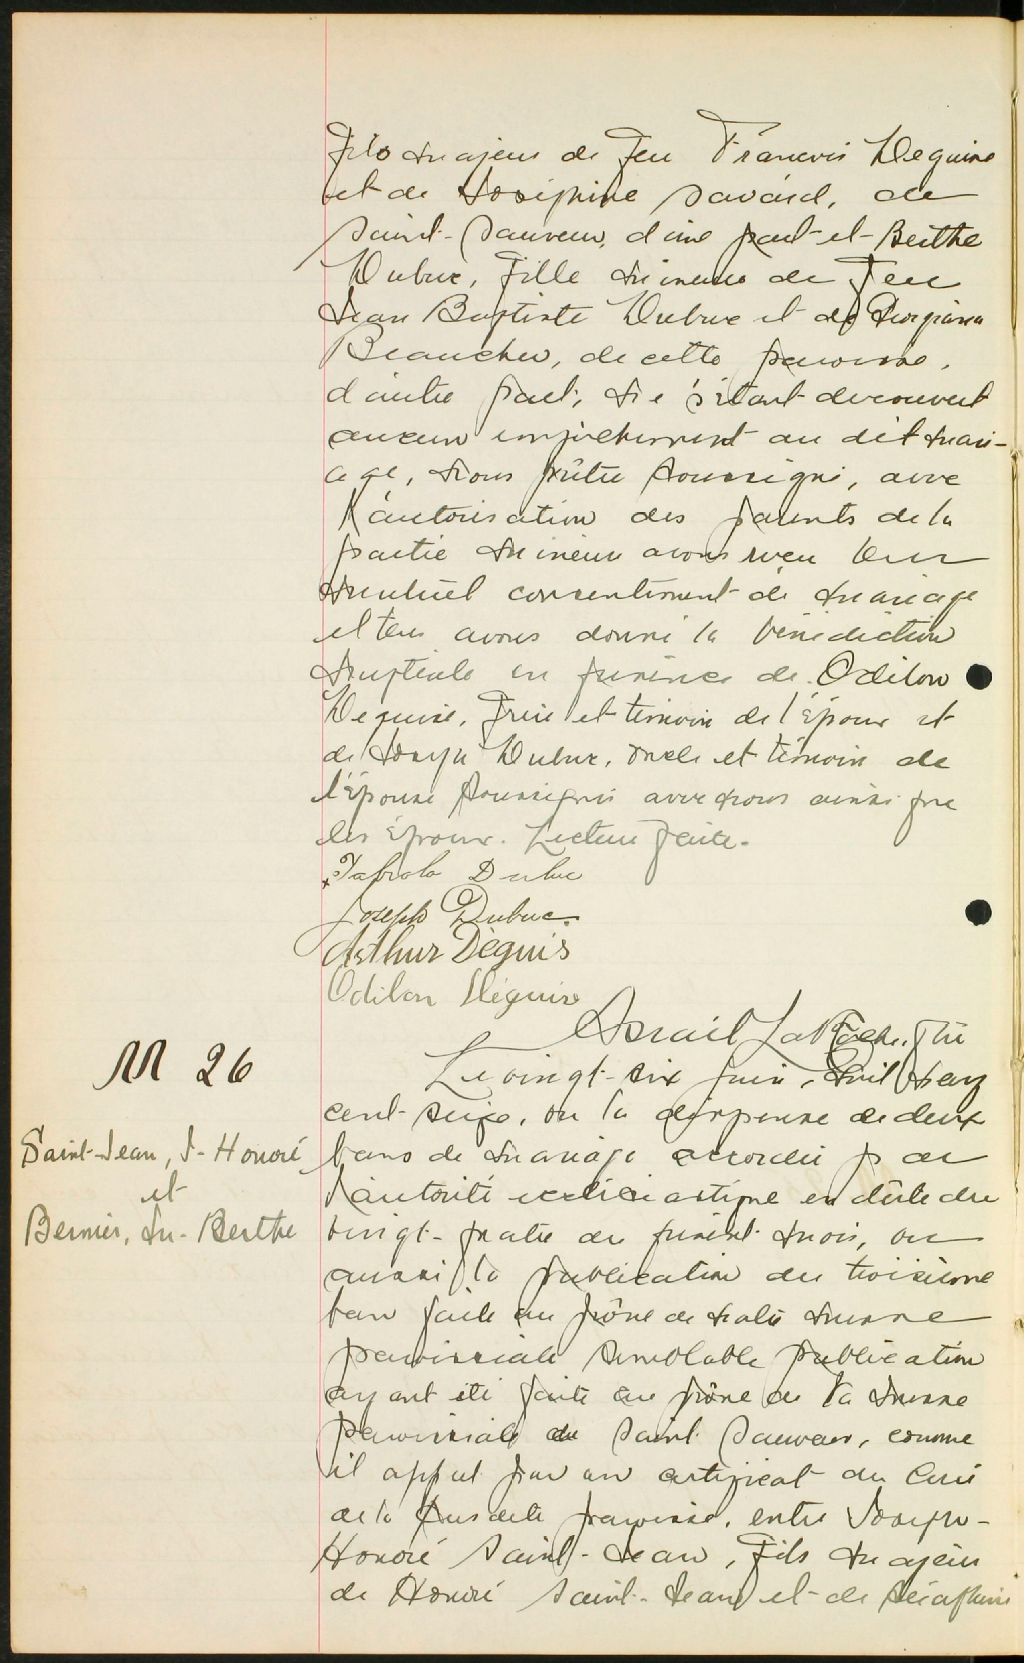 fils majeur de feu Francois Deguise
et de Joséphine Savard, de
Saint-Sauveur, d'une part et Berthe
Dubuc, fille mineure de feu
Jean Baptiste Dubuc et de Georgiana
Beaucher, de cette paroisse,
d'autre part; ne s'étant decouvert
aucun empêchement au dit mari-
age, nous prêtre soussigné, avec
l'autorisation des parents de la
partie mineure avons reçu leur
mutuel consentement de mariage
et leur avons donné la bénédiction
nuptiale en présence de Odilon
Deguise, frère et témoin de l'époux et
de Joseph Dubuc, oncle et témoin de
l'épouse soussignés avec nous ainsi que
les époux. Lecture faite.
Joseph Dubuc
Arthur Déguis
Odilon Déguise
M 26
Saint-Jean, J-Honoré
et
Bernier, M.-Berthe
Le vingt-six juin, mil neuf
cent-seize, vu la dispense de deux
bans de mariage accordée par
l'autorité ecclésiastique en date du
vingt-quatre du présent mois, vu
aussi la publication du troisième
ban faite au prône de notre messe
paroissiale semblable publication
ayant été faite au prône de la messe
paroissiale de Saint Sauveur, comme
il appert par un certificat du Curé
de la susdite paroisse, entre Joseph-
Honoré Saint-Jean, fils majeur
de Honoré Saint-Jean et de Séraphine